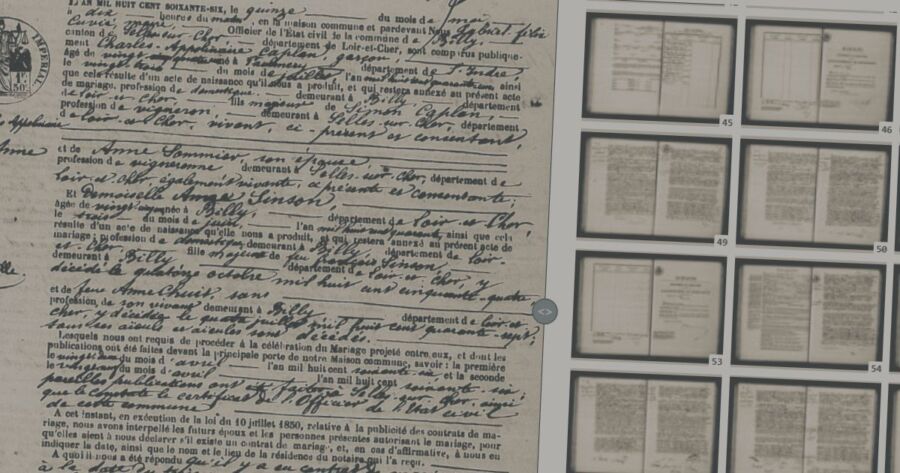 L'AN MIL HUIT CENT SOIXANTE-SIX, le quinze du mois de mai
à dix heures du matin, en la maison commune et pardevant Nous Gabriel félix
Officier de l'État civil de la commune de Billy,
canton de Selles-sur-Cher, département de Loir-et-Cher, sont comparus publique-
ment Charles-Appolinaire Caplan, garçon,
âgé de vingt cinq né à département de l'Indre,
le vingt trois du mois de juillet l'an mil huit cent quarante ainsi
que cela résulte d'un acte de naissance qu'il nous a produit, et qui restera annexé au présent acte
de mariage, profession de domestique demeurant à Billy, département
de Loir-et-Cher, fils majeur de Simon Caplan,
profession de vigneron, demeurant à Selles-sur-Cher, département
de Loir-et-Cher, vivant, ci-présent et consentant,
Appolinaire
Anne
et de Anne Sommier, son épouse
profession de vigneronne demeurant à Selles-sur-Cher, département de
Loir-et-Cher également vivante, ci présente et consentante;
Et Demoiselle Anne Sinson,
âgée de vingt née à Billy, département de Loir-et-Cher,
le trois du mois de juin, l'an mil huit cent quarante, ainsi que cela
résulte d'un acte de naissance qu'elle nous a produit, et qui restera annexé au présent acte de
mariage; profession de domestique demeurant à Billy département de Loir-
et-Cher, fille majeure de feu françois Sinson,
demeurant à Billy département de Loir-et-Cher, y
décédé le quatorze octobre mil huit cent cinquante-quatre
et de feue Anne Chuit, sans
profession, de son vivant demeurant à Billy département de Loir-et-
Cher, y décédée le quatre juillet mil huit cent quarante-sept;
tous ses aïeuls et aïeules sont décédés.
Lesquels nous ont requis de procéder à la célébration du Mariage projeté entre eux, et dont les
publications ont été faites devant la principale porte de notre Maison commune, savoir: la première
le vingt deux du mois d'avril l'an mil huit cent soixante-six et la seconde
le vingt neuf du mois d'avril l'an mil huit cent soixante-six
pareilles publications ont été faites à Selles-sur-Cher, ainsi
que le constate le certificat de l'Officier de l'état civil
de cette commune
A cet instant, en exécution de la loi du 10 juillet 1850, relative à la publicité des contrats de ma-
riage, nous avons interpellé les futurs époux et les personnes présentes autorisant le mariage, pour
qu'elles aient à nous déclarer s'il existe un contrat de mariage, et, en cas d'affirmative, à nous en
indiquer la date, ainsi que le nom et le lieu de la résidence du notaire qui l'a reçu.
A quoi il nous a été répondu qu'il y a eu contrat
à la date du
IMPÉRIAL
50
45
46
49
50
53
54